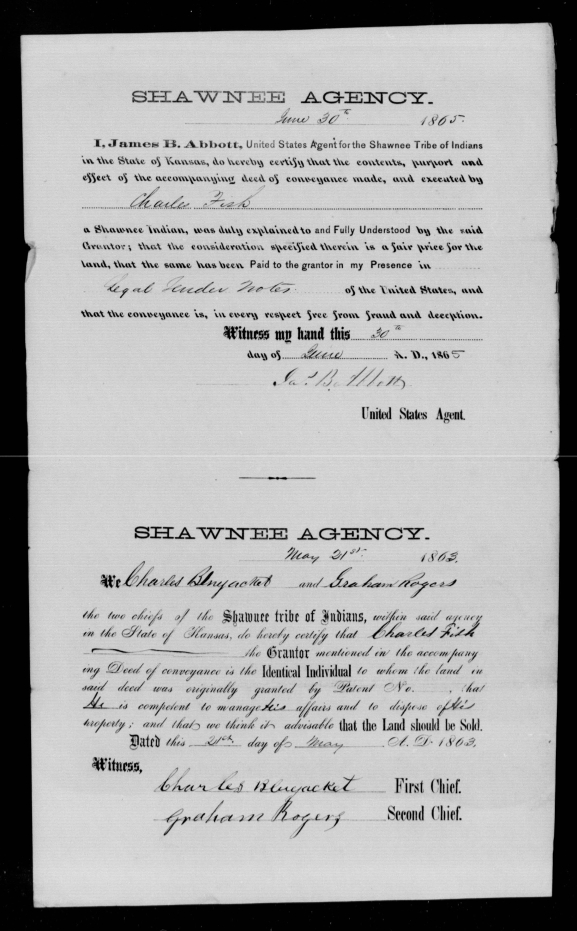 SHAWNEE AGENCY.
June 30th 1865.
I, James B. Abbott, United States Agent for the Shawnee Tribe of Indians
in the State of Kansas, do hereby certify that the contents, purport and
effect of the accompanying deed of conveyance made, and executed by
Charles Fish
a Shawnee Indian, was duly explained to and Fully Understood by the said
Grantor; that the consideration specified therein is a fair price for the
land, that the same has been Paid to the grantor in my Presence in
Legal Tender Notes of the United States, and
that the conveyance is, in every respect free from fraud and deception.
Witness my hand this 30th
day of June A. D., 1865
Jas. B. Abbott
United States Agent.
SHAWNEE AGENCY.
May 21st. 1863.
We Charles Bluejacket and Graham Rogers
the two chiefs of the Shawnee tribe of Indians, within said agency
in the State of Kansas, do hereby certify that Charles Fish
the Grantor mentioned in the accompany
ing Deed of conveyance is the Identical Individual to whom the land in
said deed was originally granted by Patent No. , that
He is competent to manage His affairs and to dispose of His
property; and that we think it advisable that the Land should be Sold.
Dated this 21st day of May A. D. 1863.
Witness,
Charles Bluejacket First Chief.
Graham Rogers Second Chief.